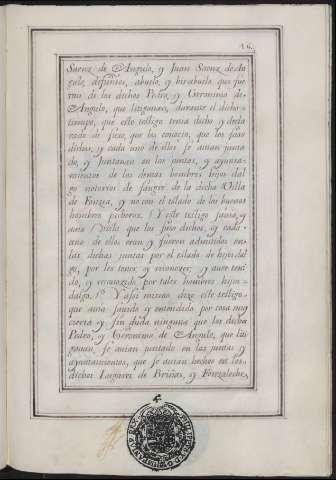 16.
Saenz de Angulo, y Juan Saenz de An
gulo, defuntos, abuelo, y bisabuelo que fue
ron de los dichos Pedro, y Geronimo de
Angulo, que litigauan, durante el dicho
tiempo, que este testigo tenia dicho y decla
rado de suso, que los conocio, que los suso
dichos, y cada uno de ellos se auian junta
do, y Juntauan en las juntas, y ayunta
mientos de los demas hombres hijos dal
go notorios de sangre de la dicha Villa
de Fonzea, y no con el estado de los buenos
hombres pecheros. Y este testigo sauia, y
auia visto que los suso dichos, y cada
uno de ellos eran y fueron admitidos en
las dichas juntas por el estado de hijos dal
go, por les tener, y reconozer; y auer teni
do, y reconozido por tales hombres hijos
dalgo. Y assi mismo dixo este testigo,
que auia sauido y entendido por cosa muy
cierta y sin duda ninguna que los dichos
Pedro, y Geronimo de Angulo, que liti
gauan, se auian juntado en las juntas y
ayuntamientos, que se auian hechos en los
dichos Lugares de Briñas, y Fonzaleche,